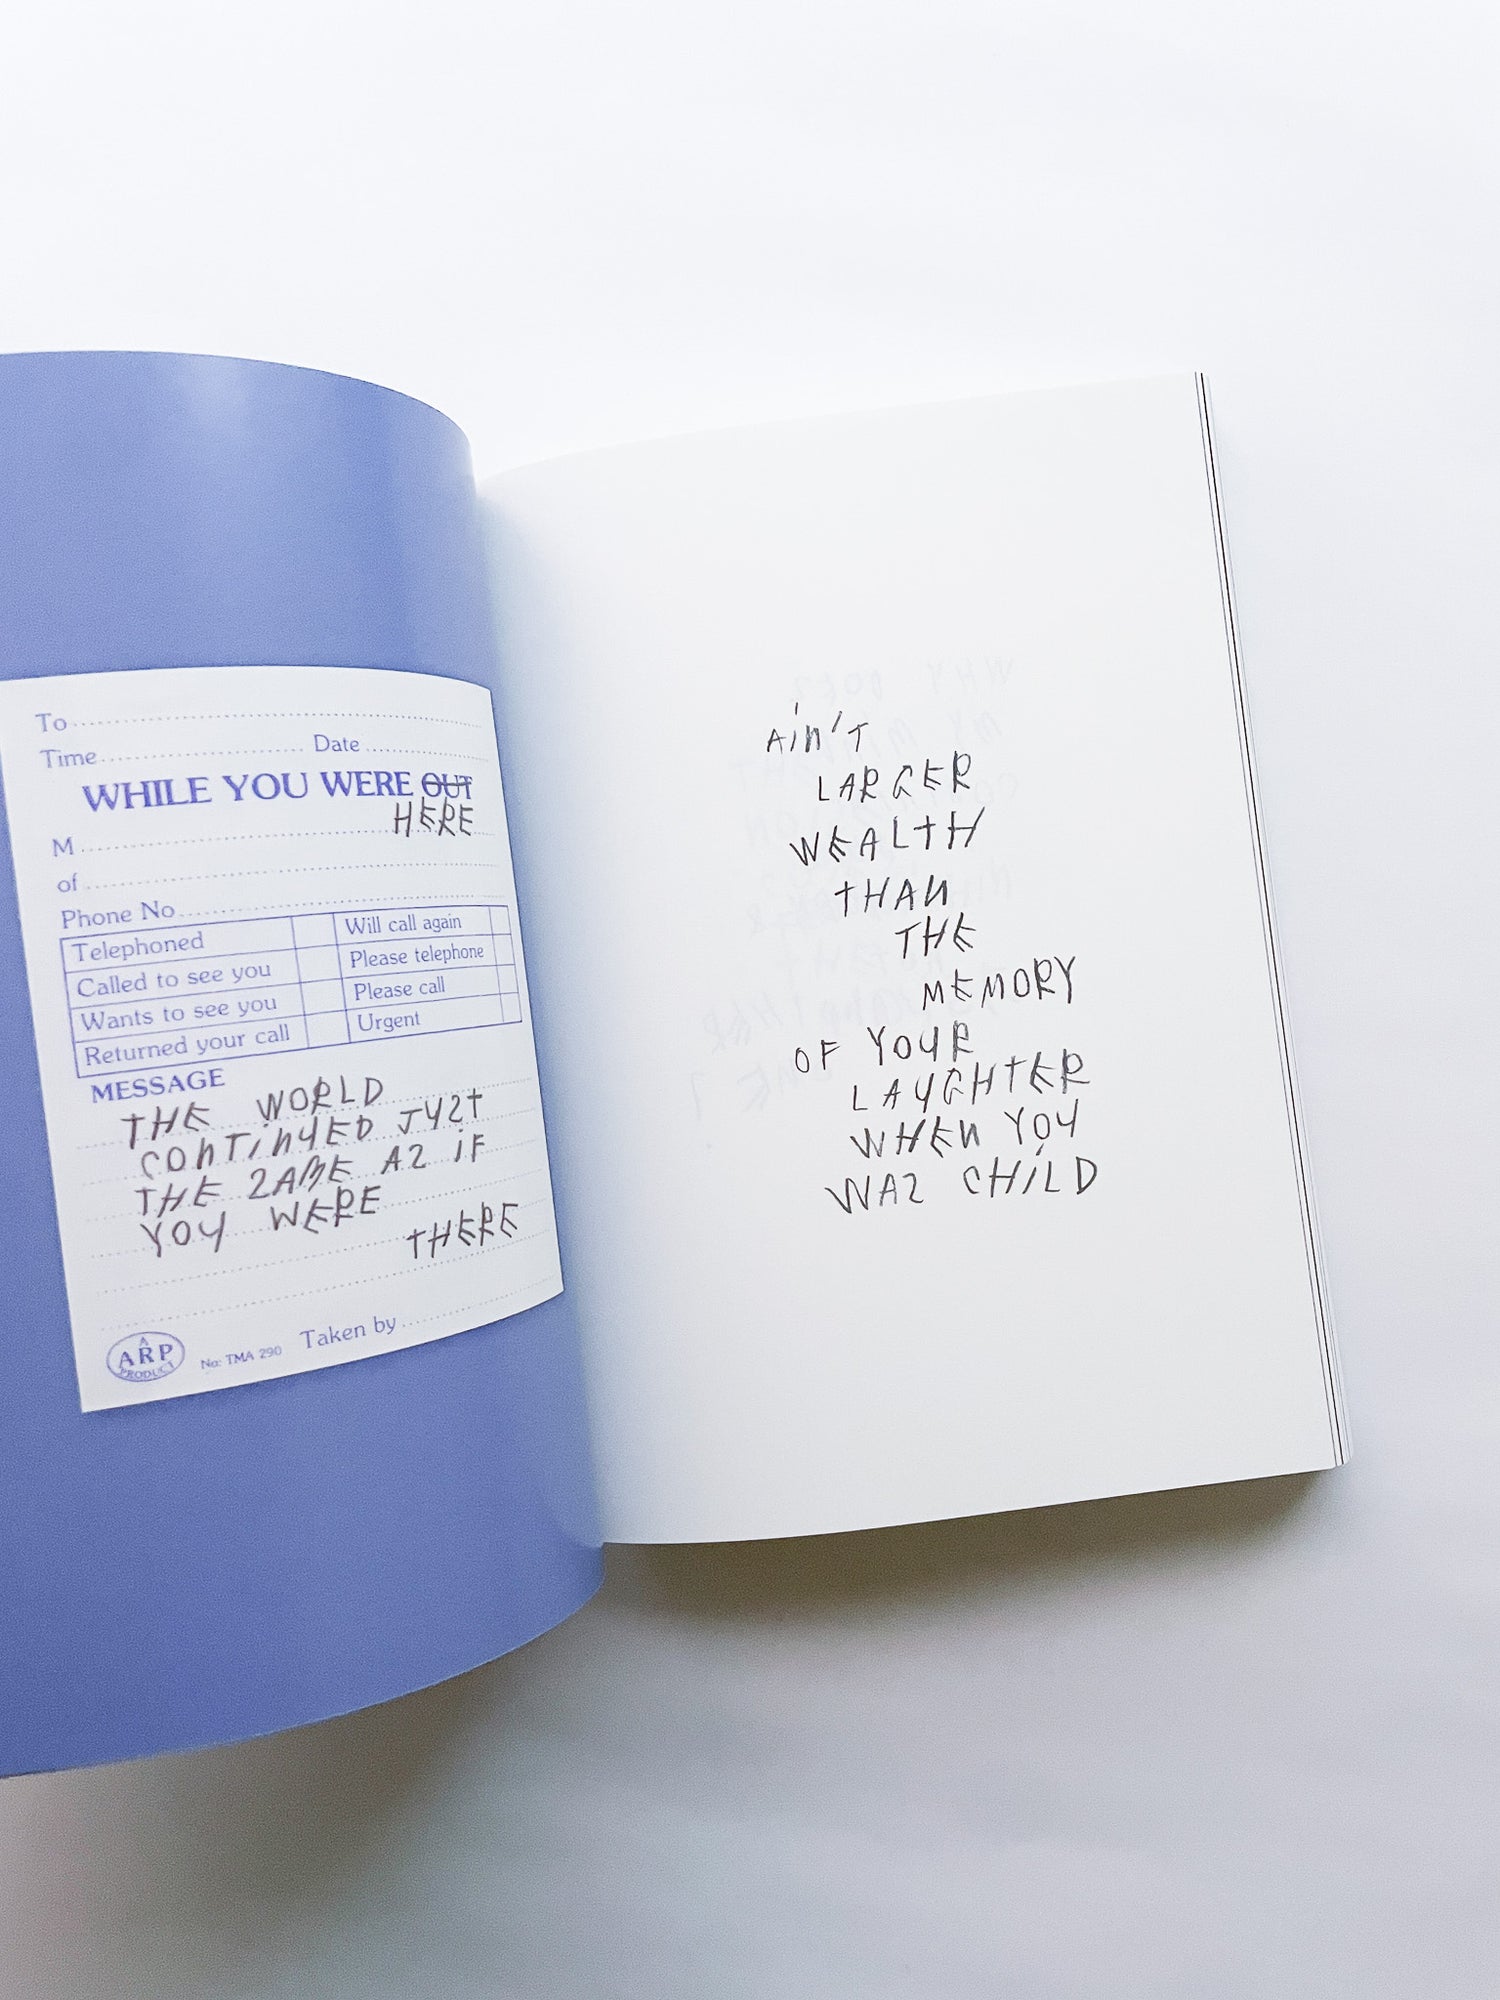 To
Time Date
WHILE YOU WERE OUT
HERE
M
of
Phone No
Telephoned Will call again
Called to see you Please telephone
Wants to see you Please call
Returned your call Urgent
MESSAGE
THE WORLD
CONTINUED JUST
THE SAME AS IF
YOU WERE
THERE
A
ARP
PRODUCT
No: TMA 290 Taken by
AIN'T
LARGER
WEALTH
THAN
THE
MEMORY
OF YOUR
LAUGHTER
WHEN YOU
WAS CHILD